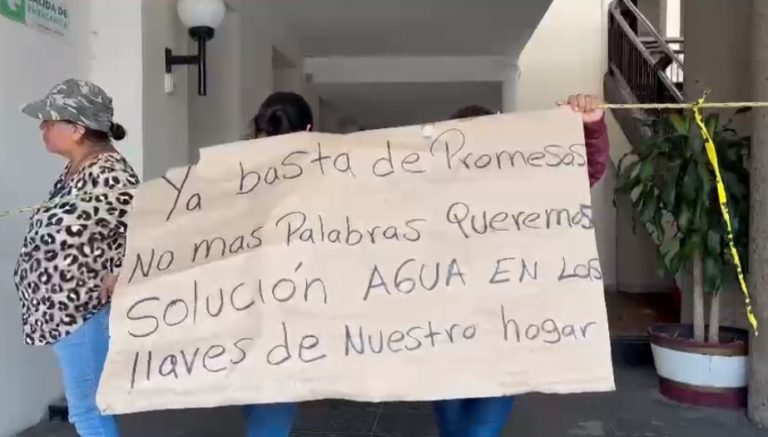 SALIDA DE
EMERGENCIA
Ya basta de Promesas
No mas Palabras Queremos
Solución AGUA EN LOS
llaves de Nuestro hogar